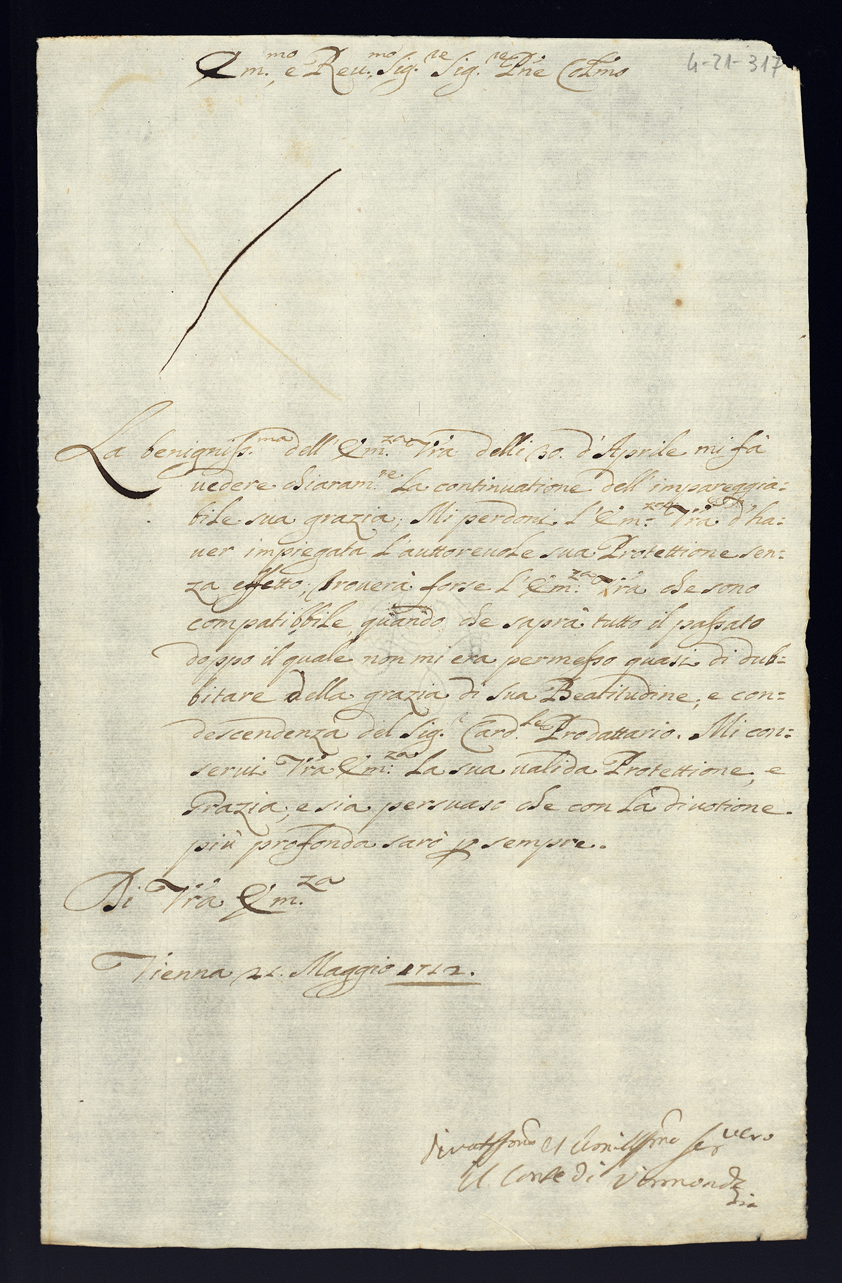 Em.mo, e Reu.mo Sig.re Sig.re Pne Colmo
4-21-317
La benigniss.ma dell' Em.za Vra delli 30. d'Aprile mi fà
uedere chiaram.te La continuatione dell' impareggia=
bile sua grazia; Mi perdoni L'Em.za Vra d'ha=
uer impiegata L'auttoreuole sua Protettione sen=
za effetto; trouerà forse L'Em.za Vra che sono
compatibbile, quando, che saprà tutto il passato
doppo il quale non mi era permesso quasi di dub=
bitare della grazia di sua Beatitudine, e con=
descendenza del Sig.r Card.le Prodattario. Mi con=
serui Vra Em.za La sua valida Protettione, e
Grazia, e sia persuaso che con La divotione
più profonda sarò p sempre.
Di Vra Em.za
Vienna 21. Maggio 1712.
seruero
Il Conte di